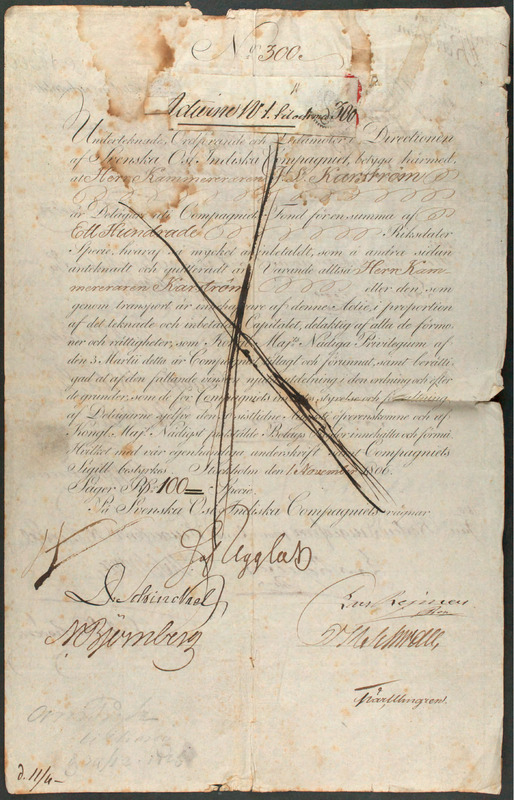 No. 300.
300
Undertecknade, Ordförande och Ledamöter i Directionen
af Svenska Ost Indiska Compagniet, betyga härmed,
at Herr Kammereraren Karström
är Delägare uti Compagniets Fond för en summa af
Ett Hundrade Riksdaler
Specie, hvaraf så mycket är inbetaldt, som å andra sidan
antecknadt och quitteradt är. Varande altså Herr Kam-
mereraren Karström eller den, som
genom transport är innehafvare af denna Actie, i proportion
af det tecknade och inbetalde Capitalet, delaktig af alla de förmo-
ner och rättigheter, som Kongl. Maj:ts Nådiga Privilegium af
den 3 Martii detta år Compagniet tillagt och förunnat, samt berätti-
gad at af den fallande vinsten njuta utdelning i den ordning och efter
de grunder, som de för Compagniets styrelse och förvaltning
af Delägarne sjelfve öfverenskomne och af
Kongl. Maj:t Nådigst fastställde Bolags Regler innehålla och förmå.
Hvilket med vår egenhändiga underskrift och Compagniets
Sigill bestyrkes. Stockholm den 1 November 1806.
Säger Rdr. 100 Specie.
På Svenska Ost Indiska Compagniets vägnar
Ugglas
D. Schinckel
N. Björnberg
Schwan
d. 11/4